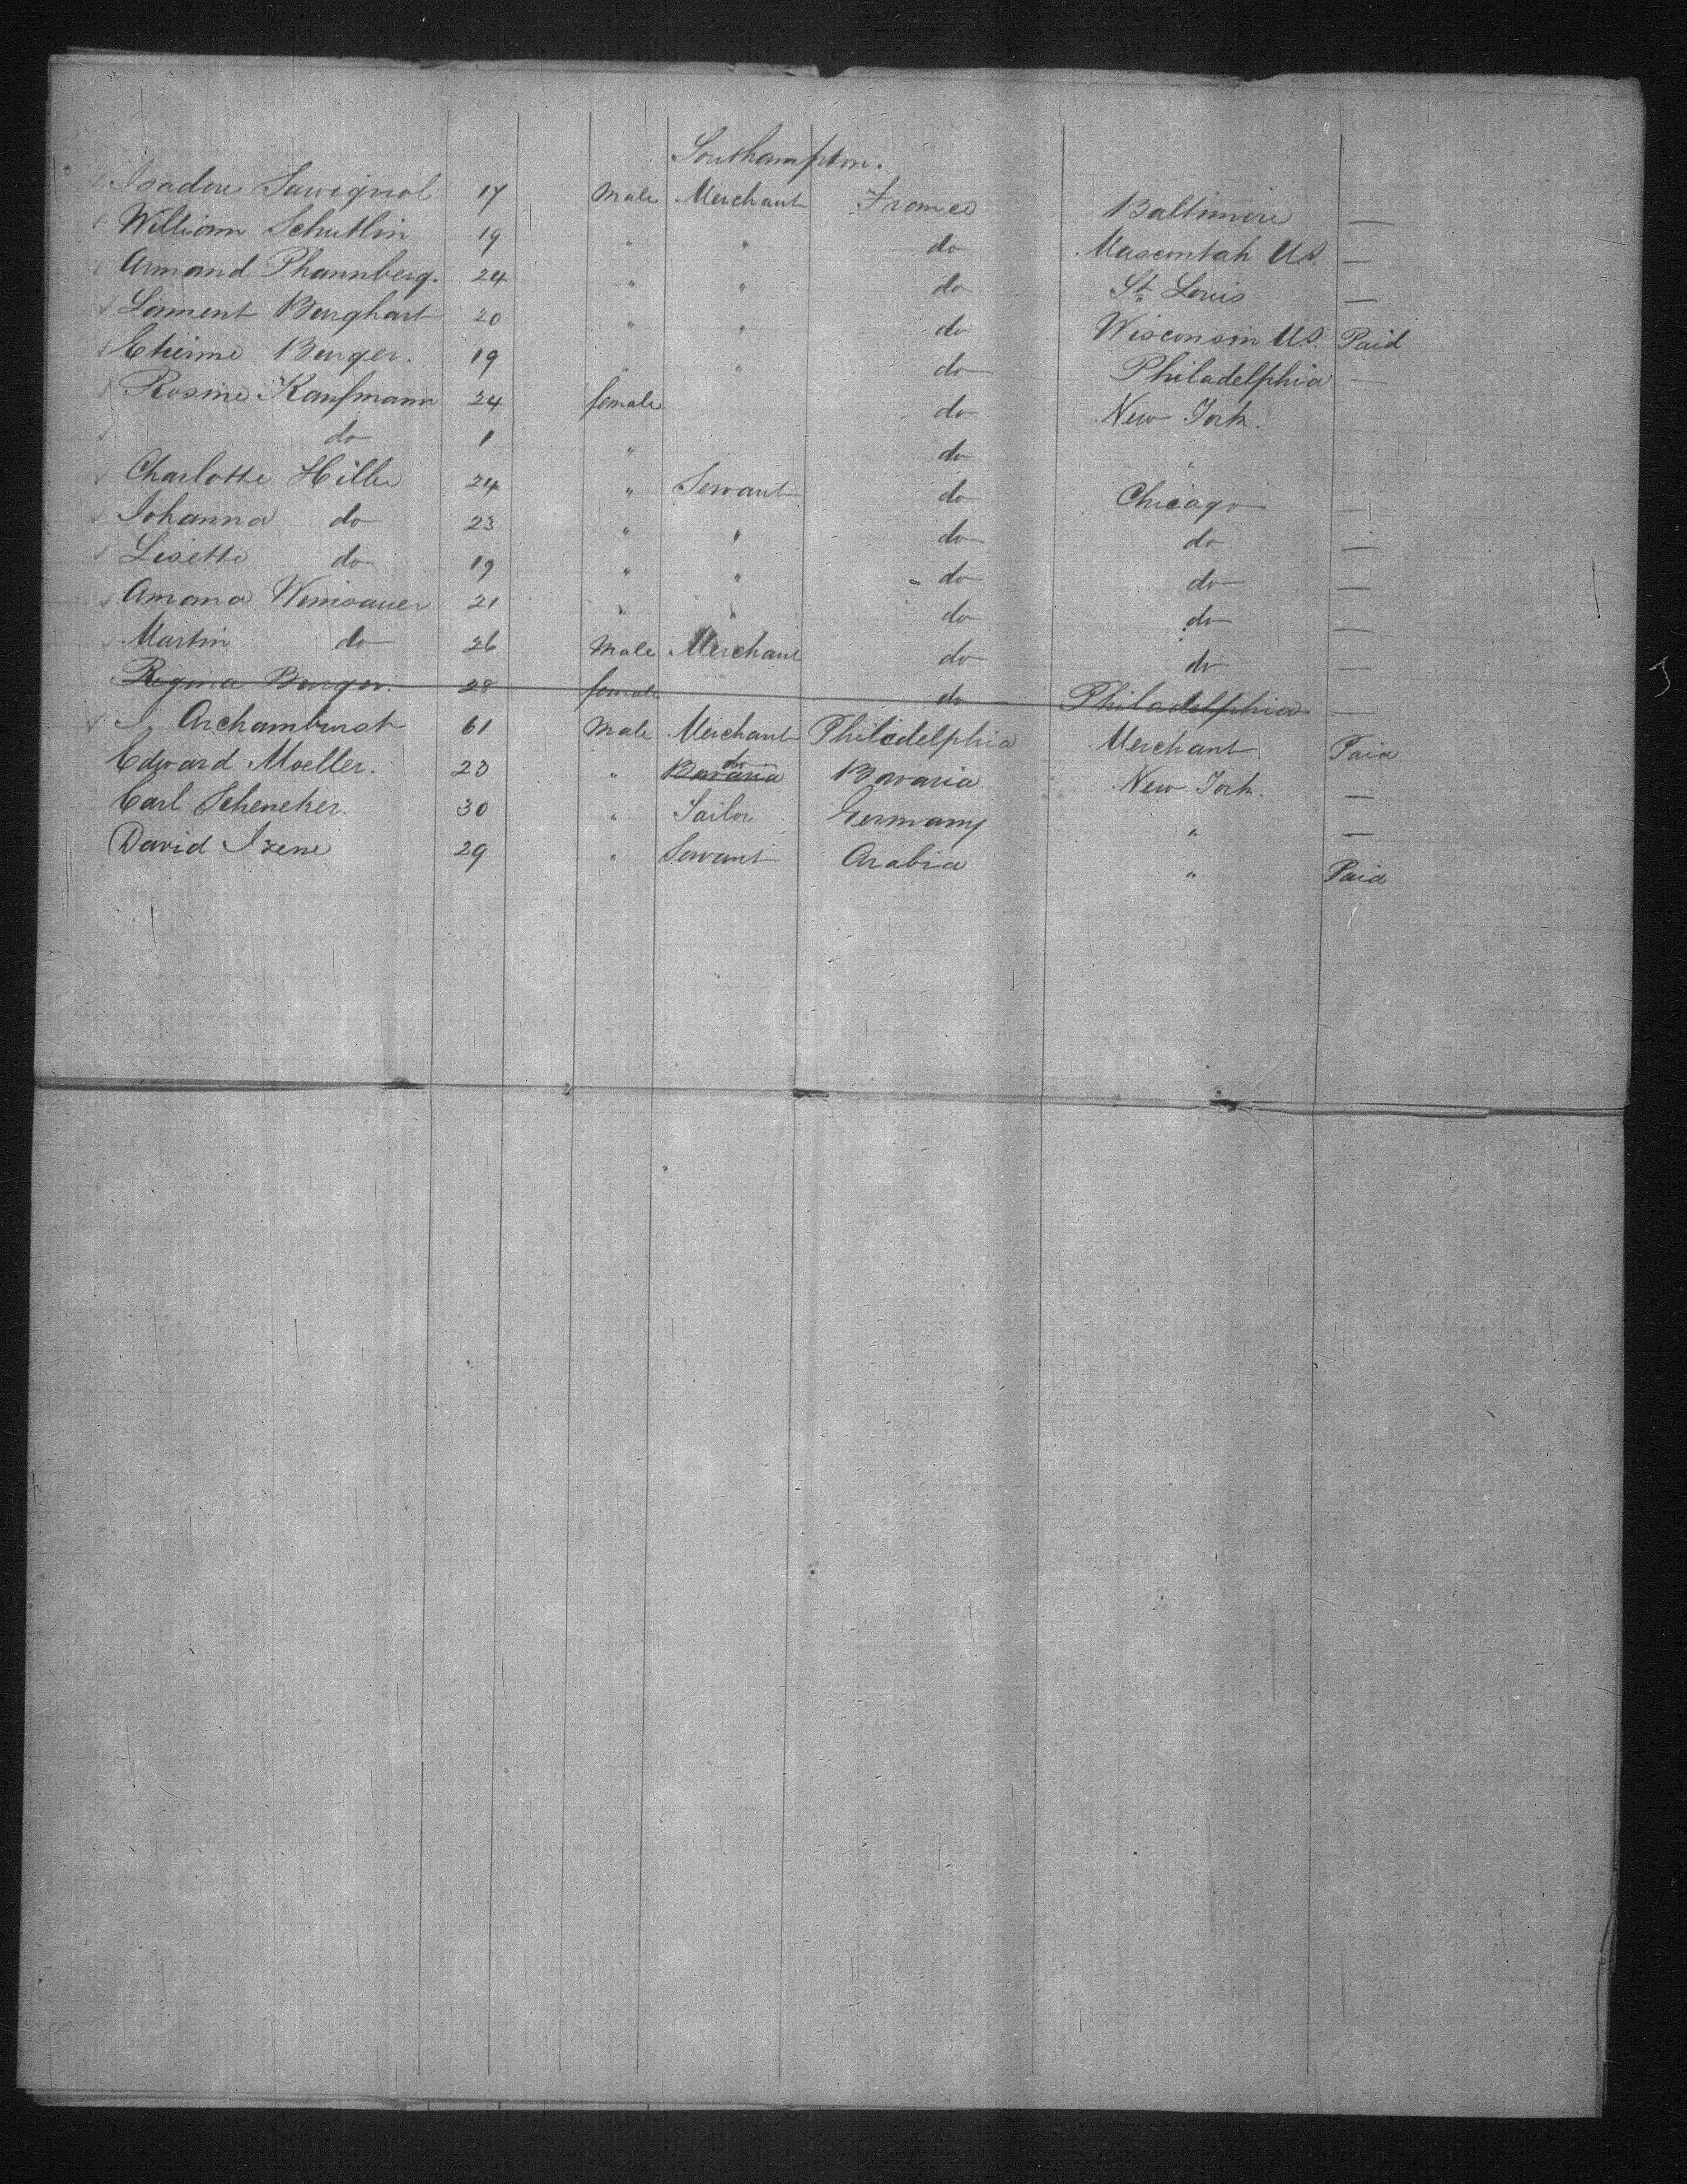 Southampton.
Isadore Sauvignol 17 Male Merchant France Baltimore —
William Schutlin 19 " " do Mascoutah U.S. —
Armand Phannberg. 24 " " do St. Louis —
Laurent Burghart 20 " " do Wisconsin U.S. Paid
Etienne Burger. 19 " " do Philadelphia —
Rosine Kaufmann 24 female do New York.
do 1 " do "
Charlotte Hiller 24 " Servant do Chicago —
Johanna do 23 " " do do —
Lisette do 19 " " do do —
Amana 21 " " do do —
Martin do 26 Male Merchant do do —
Regina Burger. 28 female do Philadelphia —
J. Archamburst 61 Male Merchant Philidelphia Merchant Paid
Edward Moeller. 23 " Bavaria do Bavaria New York. —
Carl Scheneker. 30 " Sailor Germany " —
David Izene 29 " Servant Arabia " Paid